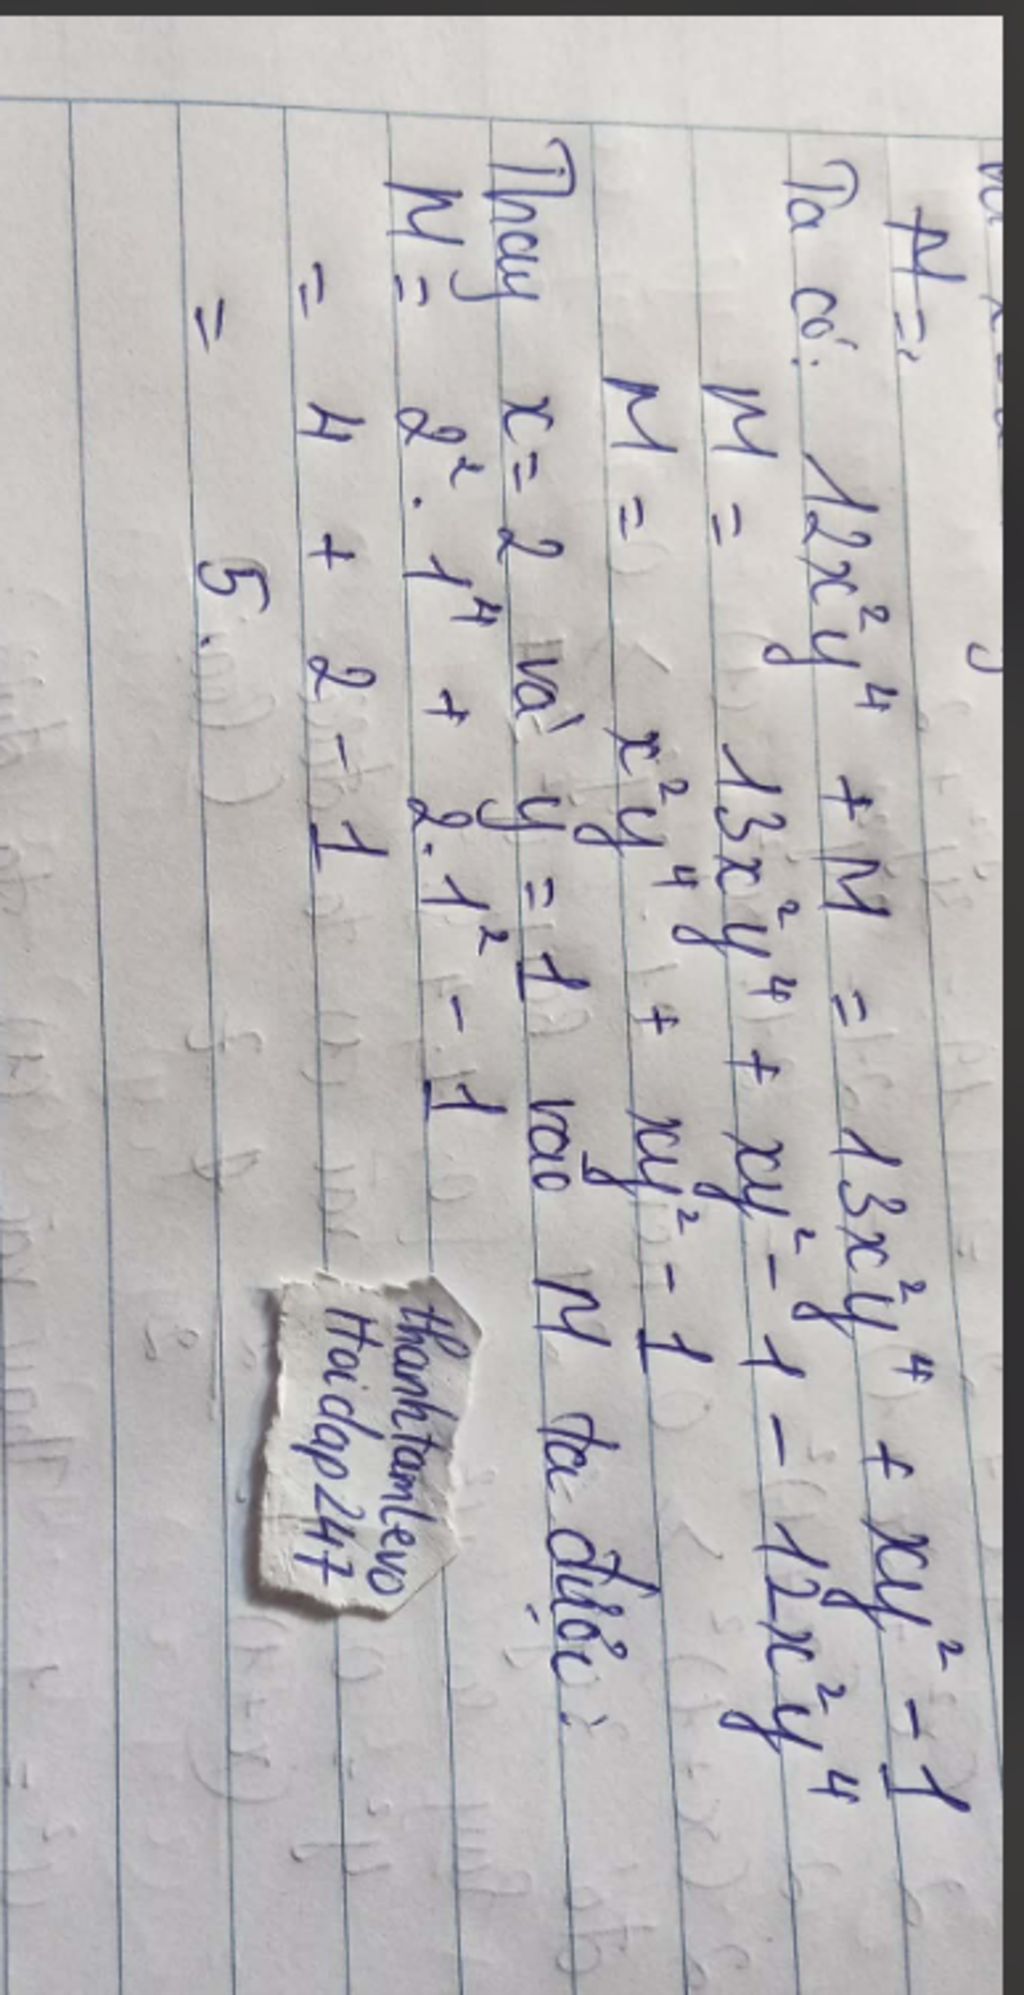 M =
Ta có: 12x²y⁴ + M = 13x²y⁴ + xy² - 1
M = 13x²y⁴ + xy² - 1 - 12x²y⁴
M = x²y⁴ + xy² - 1
Thay x = 2 và y = 1 vào M ta được:
M = 2² . 1⁴ + 2. 1² - 1
= 4 + 2 - 1
= 5.
thanhtamlevo
Hoidap247